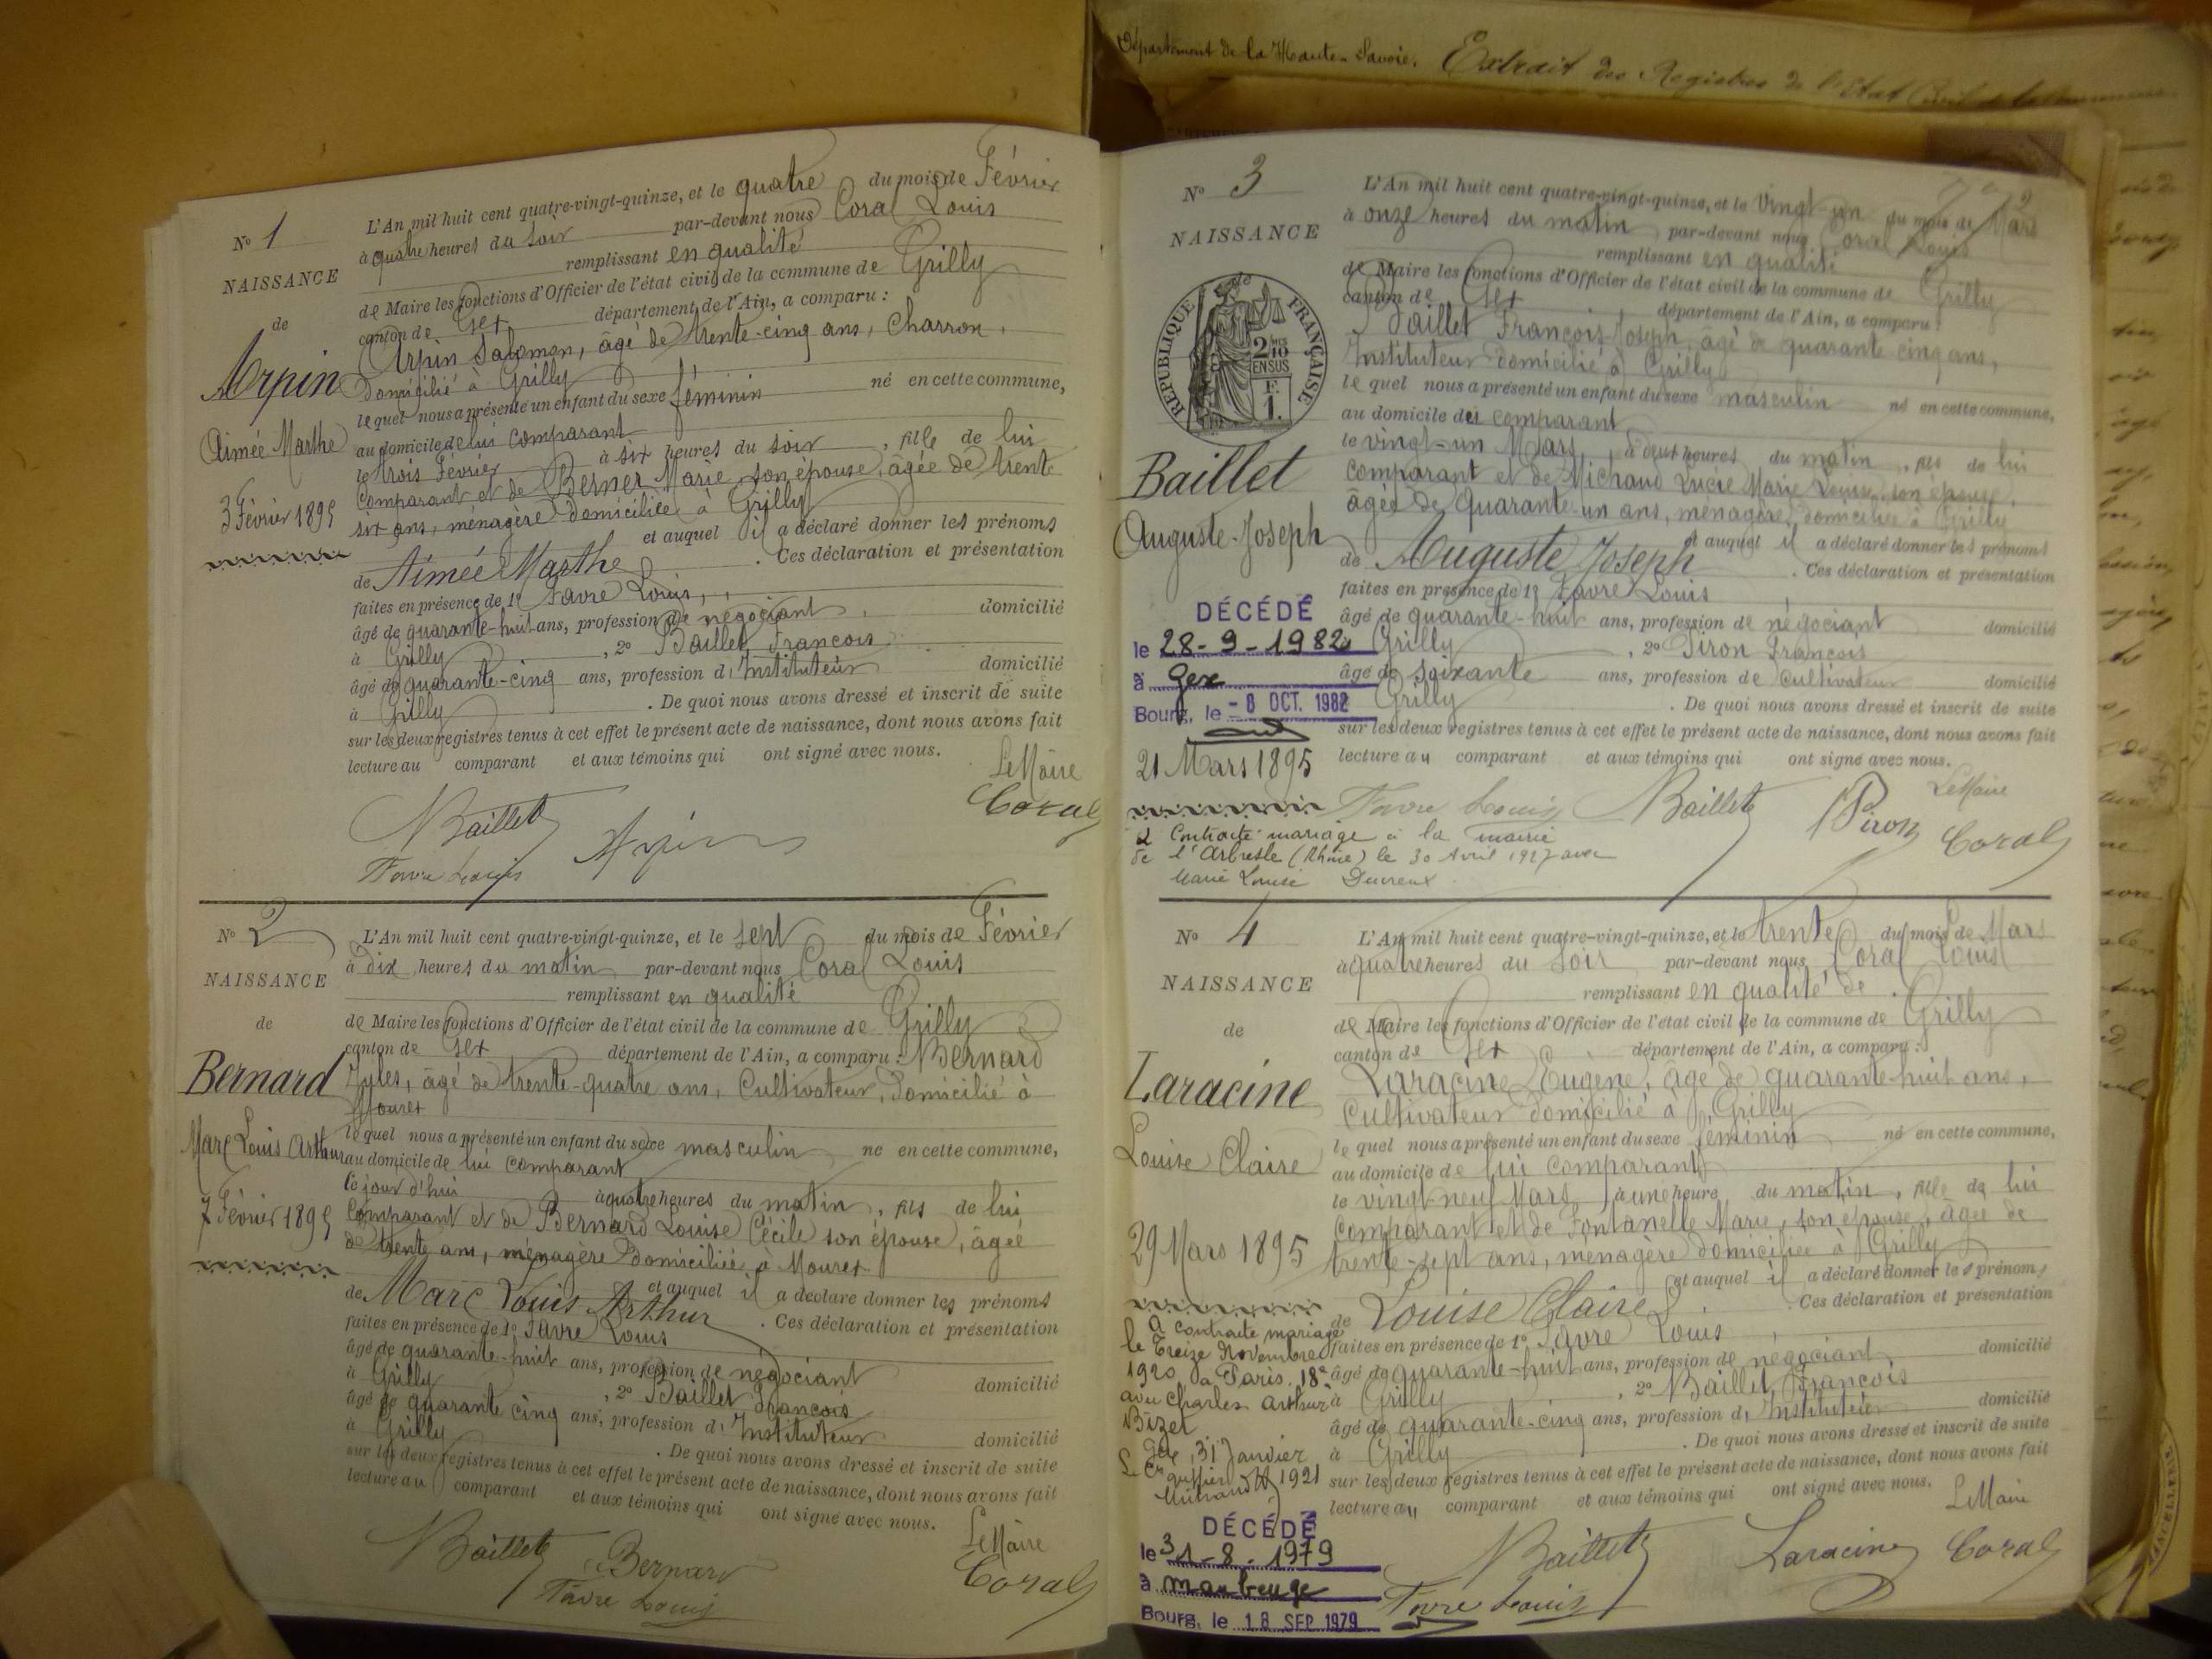 Département de la Haute-Savoie. Extrait des Registres de l'Etat Civil de la
N° 1
NAISSANCE
de
Arpin
Aimée Marthe
3 Février 1895
L'An mil huit cent quatre-vingt-quinze, et le quatre du mois de Février
à quatre heures du soir par-devant nous Coral Louis
remplissant en qualité
de Maire les fonctions d'Officier de l'état civil de la commune de Grilly
canton de Gex département de l'Ain, a comparu :
Arpin Salomon, âgé de trente-cinq ans, Charron,
domicilié à Grilly
lequel nous a présenté un enfant du sexe féminin né en cette commune,
au domicile de lui comparant
le trois Février à six heures du soir, fille de lui
comparant et de Berner Marie son épouse, âgée de trente
six ans, ménagère domiciliée à Grilly
et auquel il a déclaré donner les prénoms
de Aimée Marthe . Ces déclaration et présentation
faites en présence de 1° Favre Louis,
âgé de quarante-huit ans, profession de négociant, domicilié
à Grilly, 2° Baillet François
âgé de quarante-cinq ans, profession d'Instituteur domicilié
à Grilly . De quoi nous avons dressé et inscrit de suite
sur les deux registres tenus à cet effet le présent acte de naissance, dont nous avons fait
lecture au comparant et aux témoins qui ont signé avec nous.
Le Maire
Baillet Arpin Coral
Favre Louis
N° 2
NAISSANCE
de
Bernard
Marc Louis Arthur
7 Février 1895
L'An mil huit cent quatre-vingt-quinze, et le sept du mois de Février
à dix heures du matin par-devant nous Coral Louis
remplissant en qualité
de Maire les fonctions d'Officier de l'état civil de la commune de Grilly
canton de Gex département de l'Ain, a comparu : Bernard
Jules, âgé de trente-quatre ans, Cultivateur, domicilié à
Mourex
lequel nous a présenté un enfant du sexe masculin né en cette commune,
au domicile de lui comparant
ce jour d'hui à quatre heures du matin, fils de lui
comparant et de Bernard Louise Cécile son épouse, âgée
de trente ans, ménagère domiciliée à Mourex
et auquel il a déclaré donner les prénoms
de Marc Louis Arthur . Ces déclaration et présentation
faites en présence de 1° Favre Louis
âgé de quarante-huit ans, profession de négociant domicilié
à Grilly, 2° Baillet François
âgé de quarante cinq ans, profession d'Instituteur domicilié
à Grilly . De quoi nous avons dressé et inscrit de suite
sur les deux registres tenus à cet effet le présent acte de naissance, dont nous avons fait
lecture au comparant et aux témoins qui ont signé avec nous.
Le Maire
Baillet Bernard Coral
Favre Louis
N° 3
NAISSANCE
REPUBLIQUE FRANÇAISE
2/10 EN SUS
F. 1.
Baillet
Auguste-Joseph
DÉCÉDÉ
le 28-9-1982
à Gex
Bourg, le - 8 OCT. 1982
21 Mars 1895
L'An mil huit cent quatre-vingt-quinze, et le vingt-un du mois de Mars
à onze heures du matin par-devant nous Coral Louis
remplissant en qualité
de Maire les fonctions d'Officier de l'état civil de la commune de Grilly
canton de Gex, département de l'Ain, a comparu :
Baillet François Joseph, âgé de quarante cinq ans,
Instituteur domicilié à Grilly
lequel nous a présenté un enfant du sexe masculin né en cette commune,
au domicile du comparant
le vingt-un Mars, à deux heures du matin, fils de lui
comparant et de Michaud Lucie Marie Louise son épouse,
âgée de quarante-un ans, ménagère, domiciliée à Grilly
et auquel il a déclaré donner les prénoms
de Auguste Joseph . Ces déclaration et présentation
faites en présence de 1° Favre Louis
âgé de quarante-huit ans, profession de négociant domicilié
à Grilly, 2° Piron François
âgé de soixante ans, profession de Cultivateur domicilié
Grilly . De quoi nous avons dressé et inscrit de suite
sur les deux registres tenus à cet effet le présent acte de naissance, dont nous avons fait
lecture au comparant et aux témoins qui ont signé avec nous.
Le Maire
Favre Louis Baillet Piron Coral
a Contracté mariage à la mairie
de l'Arbresle (Rhône) le 30 Avril 1927 avec
Marie Louise
N° 4
NAISSANCE
de
Laracine
Louise Claire
29 Mars 1895
a contracté mariage
le Treize Novembre
1920 à Paris 18e
avec Charles Arthur
Bizet
Gex, 31 Janvier
1921
DÉCÉDÉ
le 31-8-1979
à maubeuge
Bourg, le 18 SEP 1979
L'An mil huit cent quatre-vingt-quinze, et le trente du mois de Mars
à quatre heures du soir par-devant nous Coral Louis
remplissant en qualité de
de Maire les fonctions d'Officier de l'état civil de la commune de Grilly
canton de Gex département de l'Ain, a comparu :
Laracine Eugène, âgé de quarante-huit ans,
Cultivateur domicilié à Grilly
lequel nous a présenté un enfant du sexe féminin né en cette commune,
au domicile de lui comparant
le vingt neuf Mars à une heure du matin, fille de lui
comparant et de Fontanelle Marie, son épouse, âgée de
trente-sept ans, ménagère domiciliée à Grilly
et auquel il a déclaré donner les prénoms
de Louise Claire . Ces déclaration et présentation
faites en présence de 1° Favre Louis
âgé de quarante-huit ans, profession de négociant domicilié
à Grilly, 2° Baillet François
âgé de quarante-cinq ans, profession d'Instituteur domicilié
à Grilly . De quoi nous avons dressé et inscrit de suite
sur les deux registres tenus à cet effet le présent acte de naissance, dont nous avons fait
lecture au comparant et aux témoins qui ont signé avec nous.
Le Maire
Baillet Laracine Coral
Favre Louis